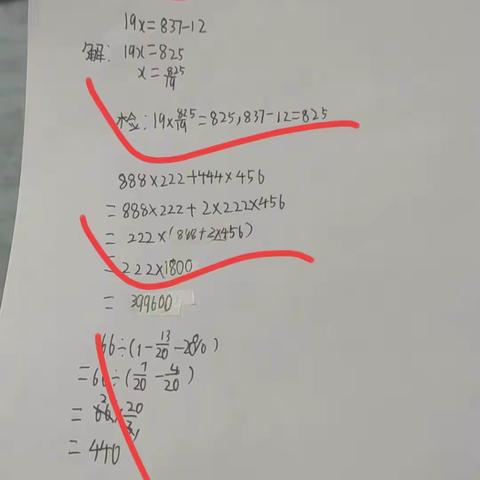 19x=837-12
解: 19x=825
x=825/19
检: 19×825/19=825,837-12=825
888×222+444×456
=888×222+2×222×456
=222×(888+2×456)
=222×1800
=399600
66÷(1-13/20-20%)
=66÷(7/20-4/20)
=66×20/3
=440